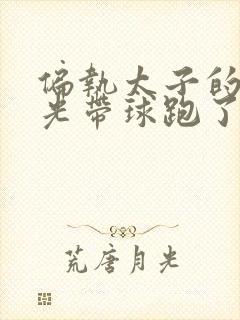 偏執太子的
光帶球跑了
荒唐月光